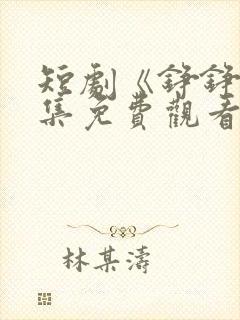 短劇《錚錚
集免費觀看
林某濤